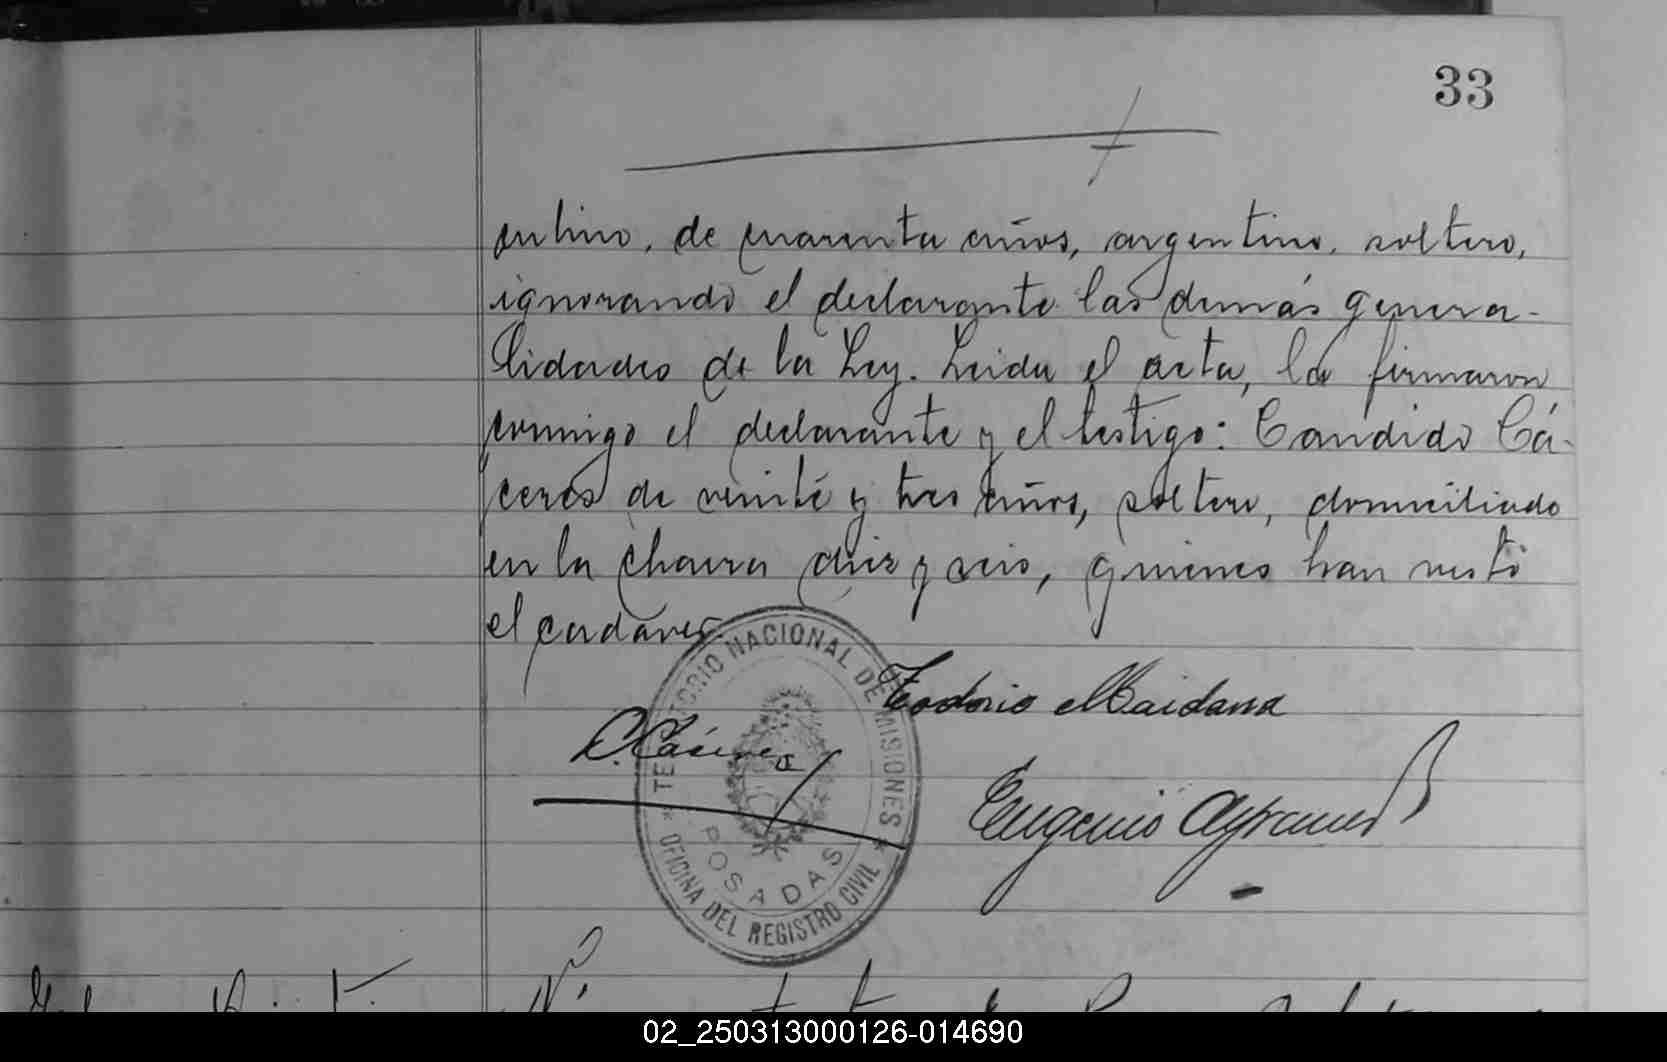 33
culino, de cuarenta años, argentino, soltero,
ignorando el declarante las demás genera-
lidades de la Ley. Leida el acta, la firmaron
conmigo el declarante y el testigo: Candido Cá-
ceres de veinte y tres años, soltero, domiciliado
en la chacra diez y seis, quienes han visto
el cadaver.
TERRITORIO NACIONAL DE MISIONES
Teodorio Maidana
C. Cáceres
Eugenio
POSADAS
OFICINA DEL REGISTRO CIVIL
02_250313000126-014690